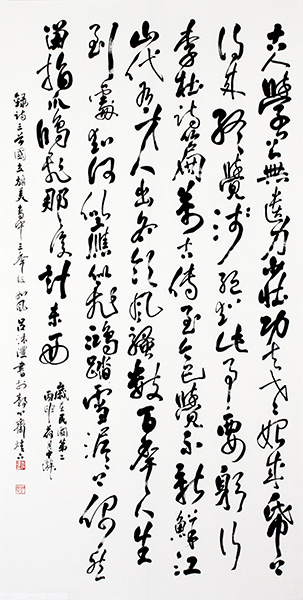 古人學問無遺力少壯功夫老始成紙上
得來終覺淺絕知此事要躬行
李杜詩篇萬古傳至今已覺不新鮮江
山代有才人出各領風騷數百年人生
到處知何似應似飛鴻踏雪泥々上偶然
留指爪鴻飛那復計東西
歲在民國第二
丙申
錄詩三首國立美高中三年如風呂沐澧書於靜心齋